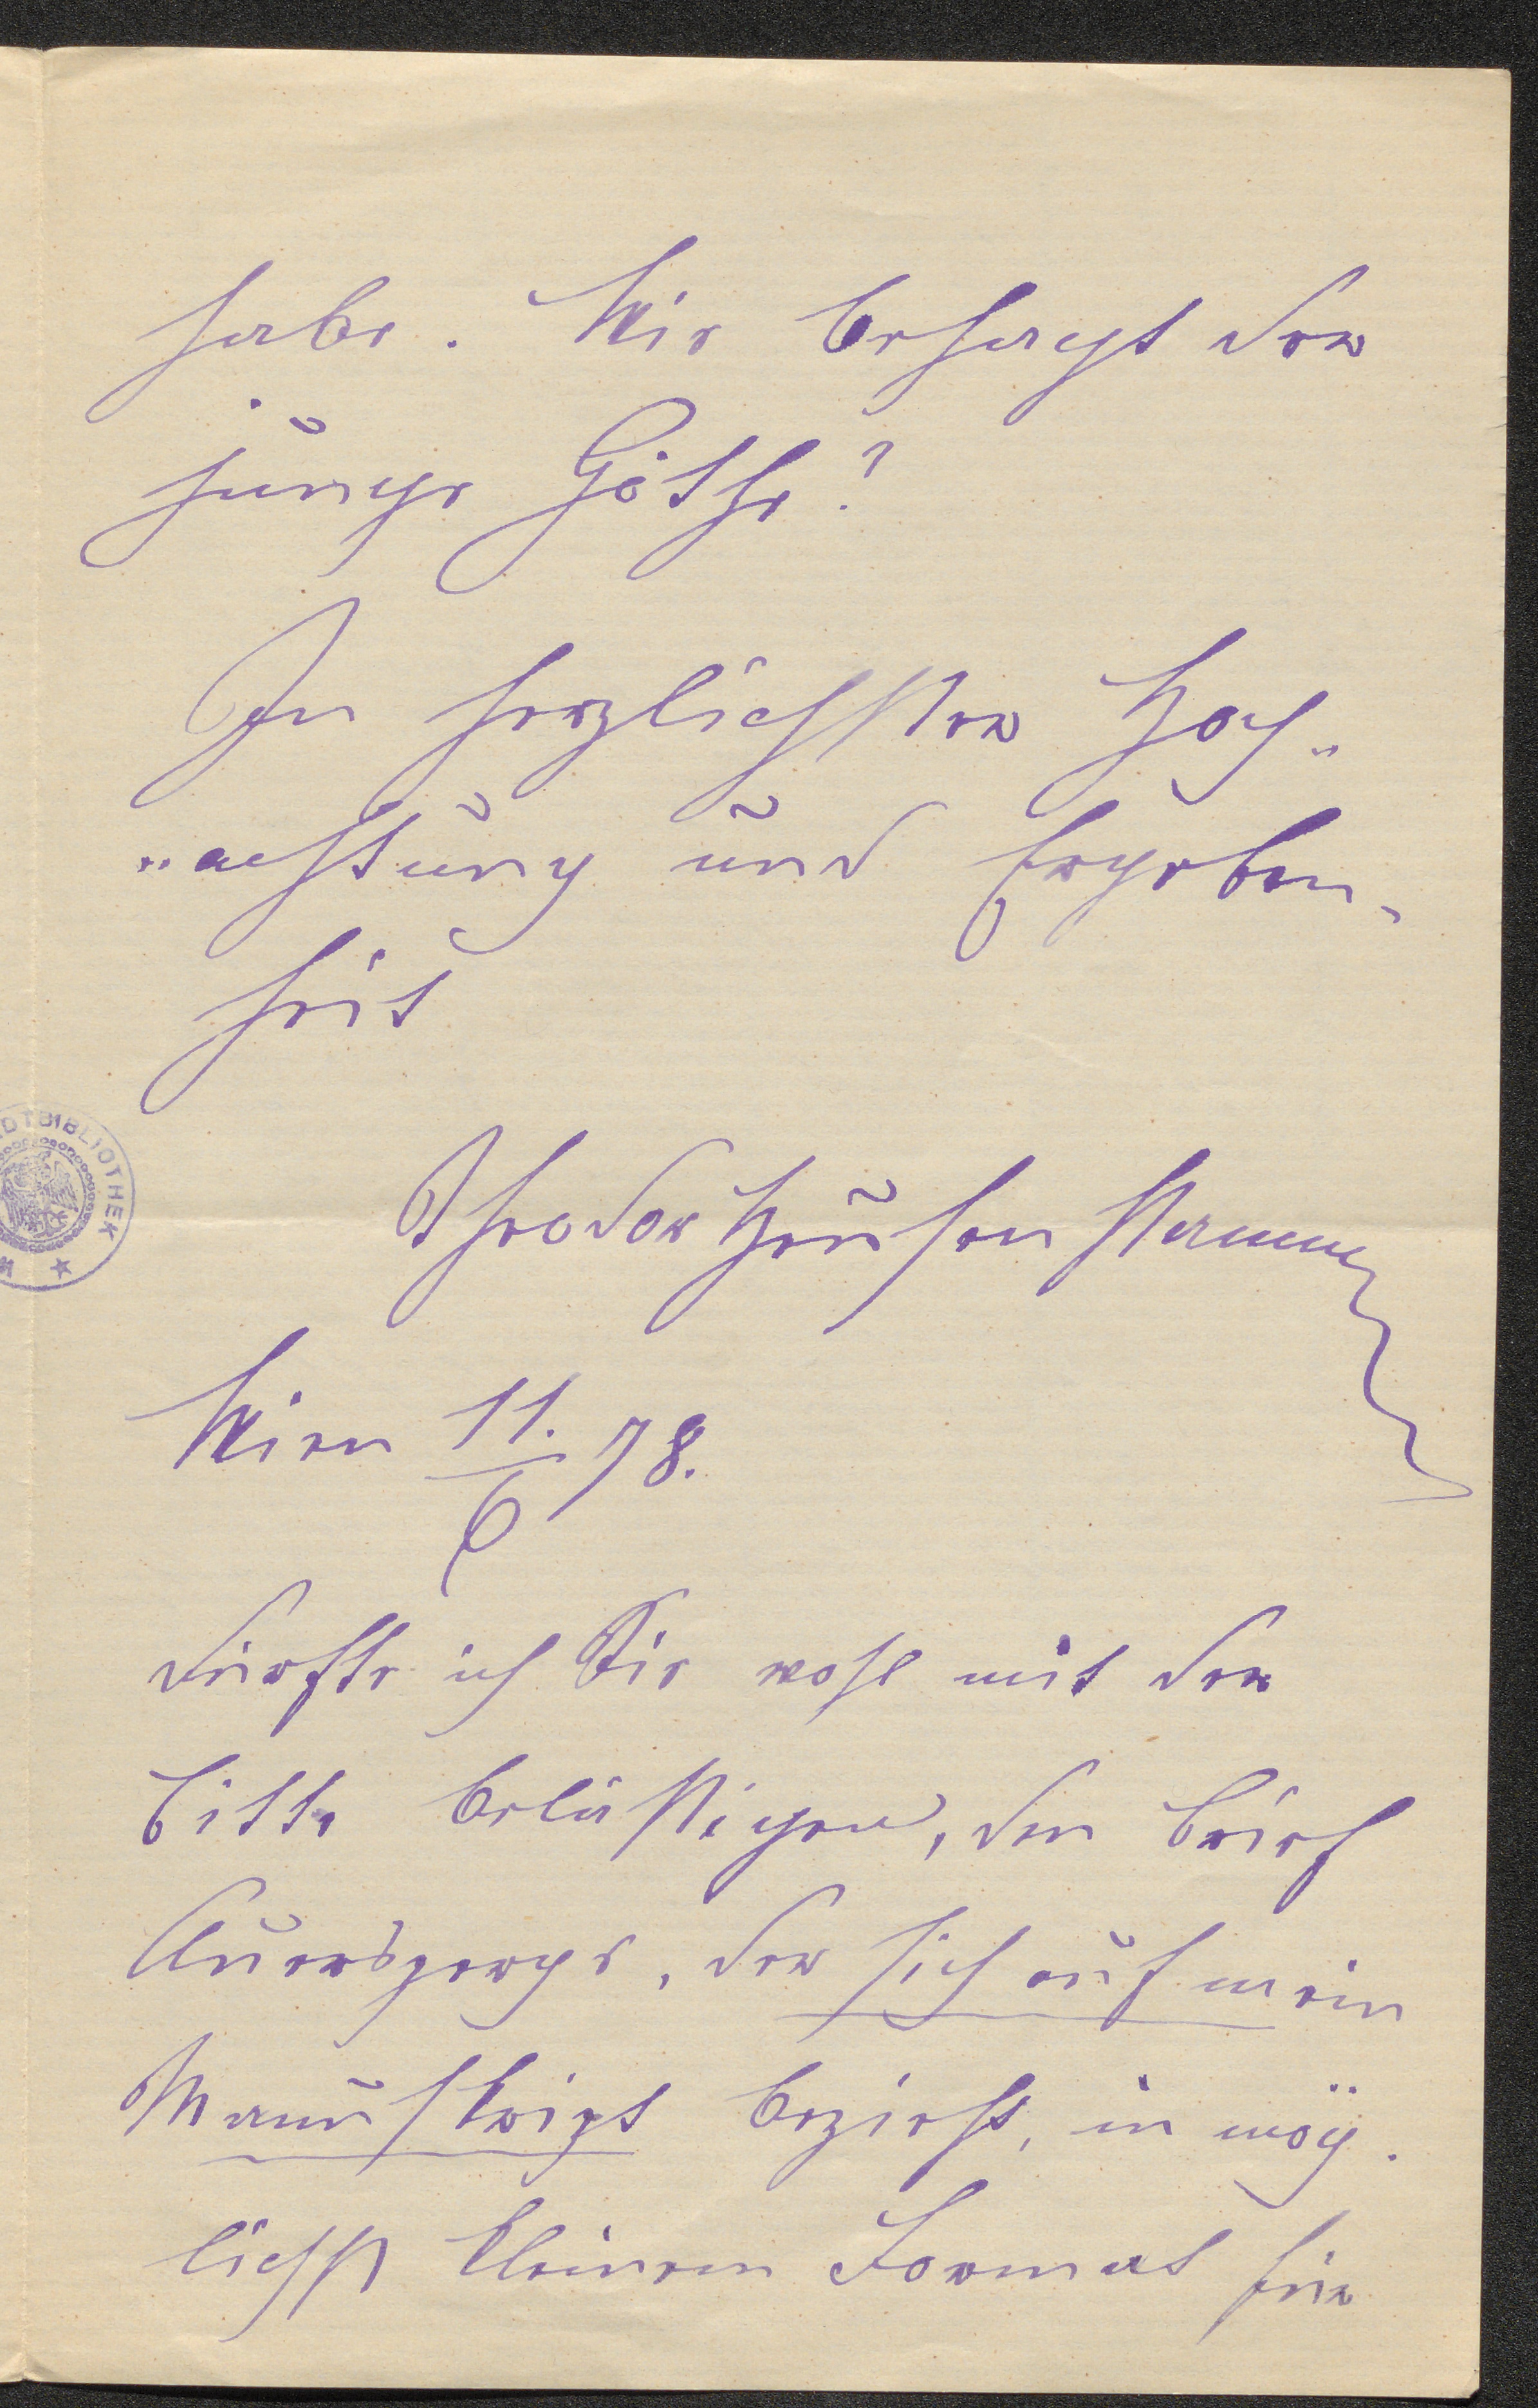 habe. Wie behagt der
junge Göthe?
In herzlichster Hoch„
„achtung und Ergeben-
heit
Theodor Heusenstamm
Wien 11./6 78.
Dürfte ich Sie wohl mit der
Bitte belästigen, den Brief
Auerspergs, der sich auf mein
Manuskript bezieht, in mög-
lichst kleinem Format für
DTBIBLIOTHEK